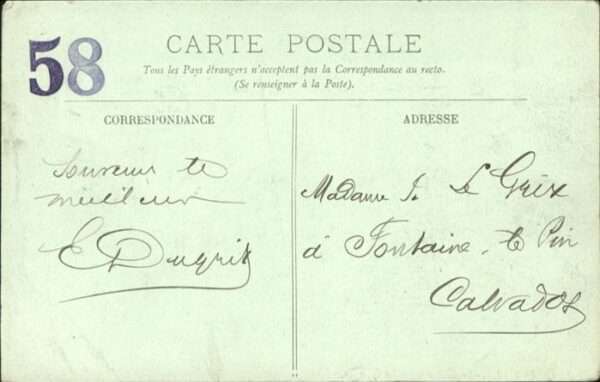 58
CARTE POSTALE
Tous les Pays étrangers n'acceptent pas la Correspondance au recto.
(Se renseigner à la Poste).
CORRESPONDANCE
ADRESSE
Souvenir le
meilleur
E Dugrix
Madame J. Le Grix
à Fontaine-le Pin
Calvados